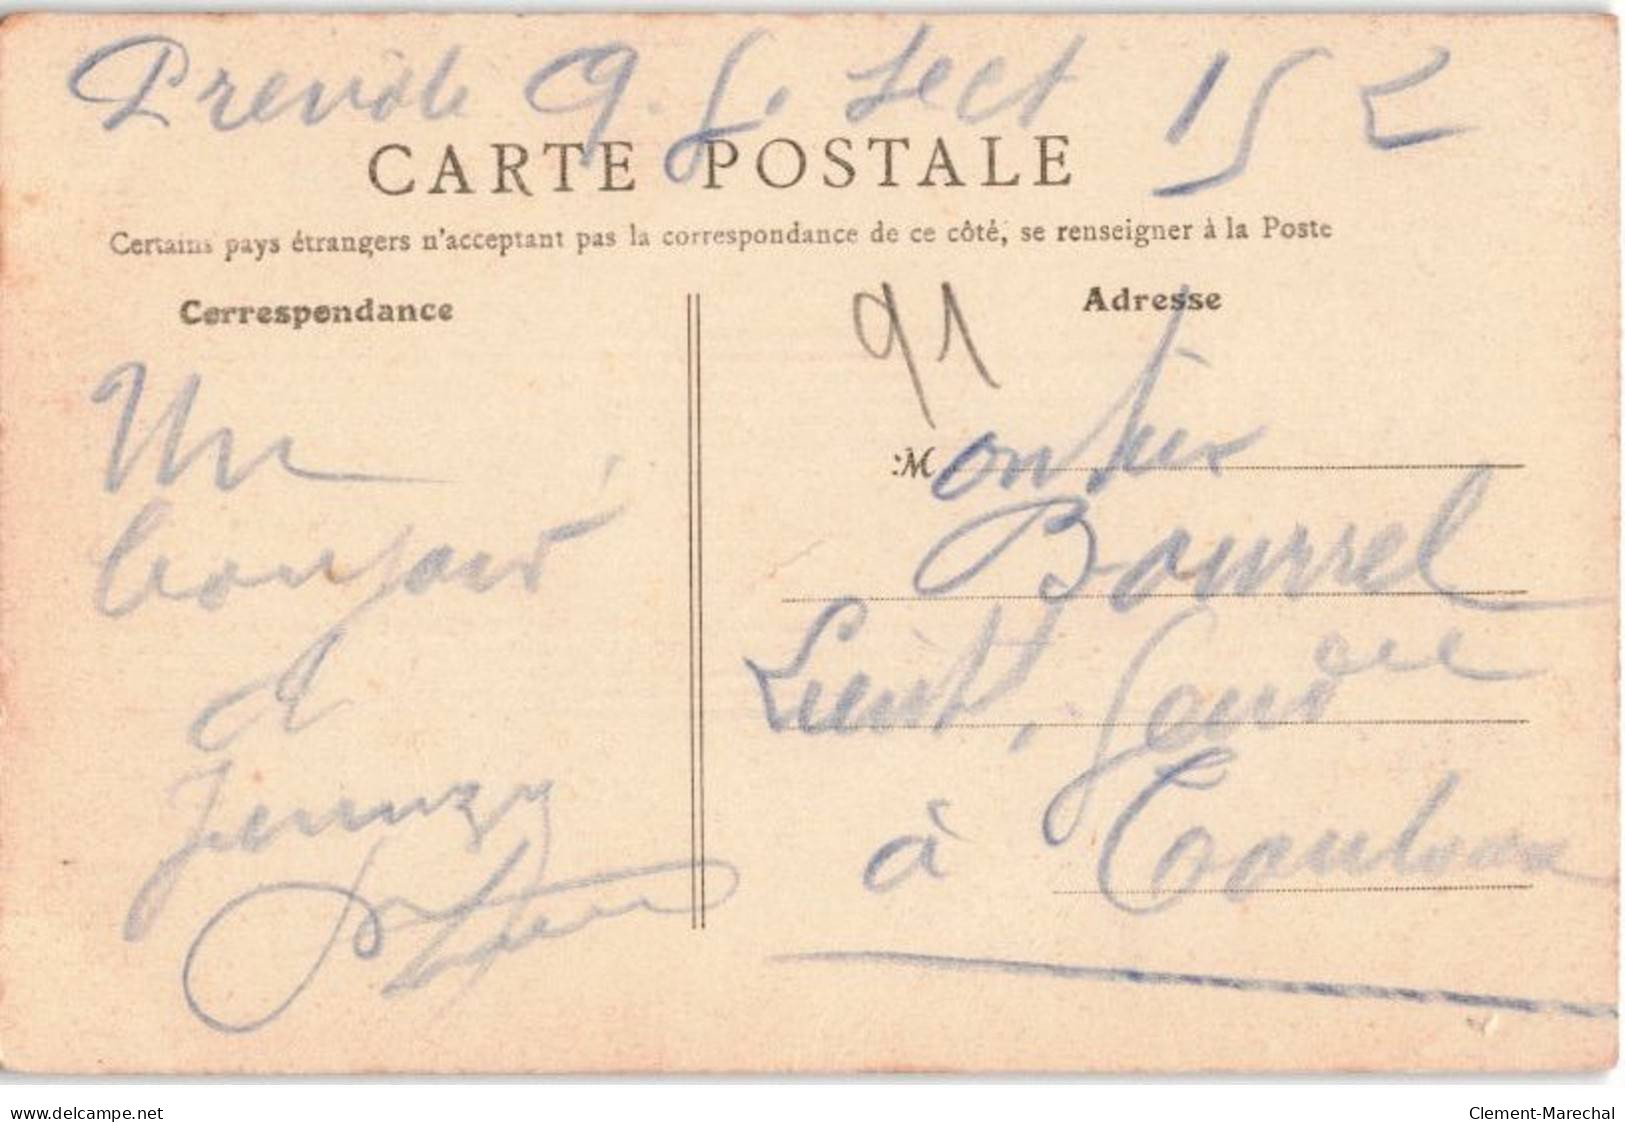 Prévôté Q. G. Sect 152
CARTE POSTALE
Certains pays étrangers n'acceptant pas la correspondance de ce côté, se renseigner à la Poste
Correspondance
Un
bonjour
d
91
Adresse
Monsieur
Bourrel
Lieut, Gend rie
à Toulouse
delcampe.net
Clement-Marechal